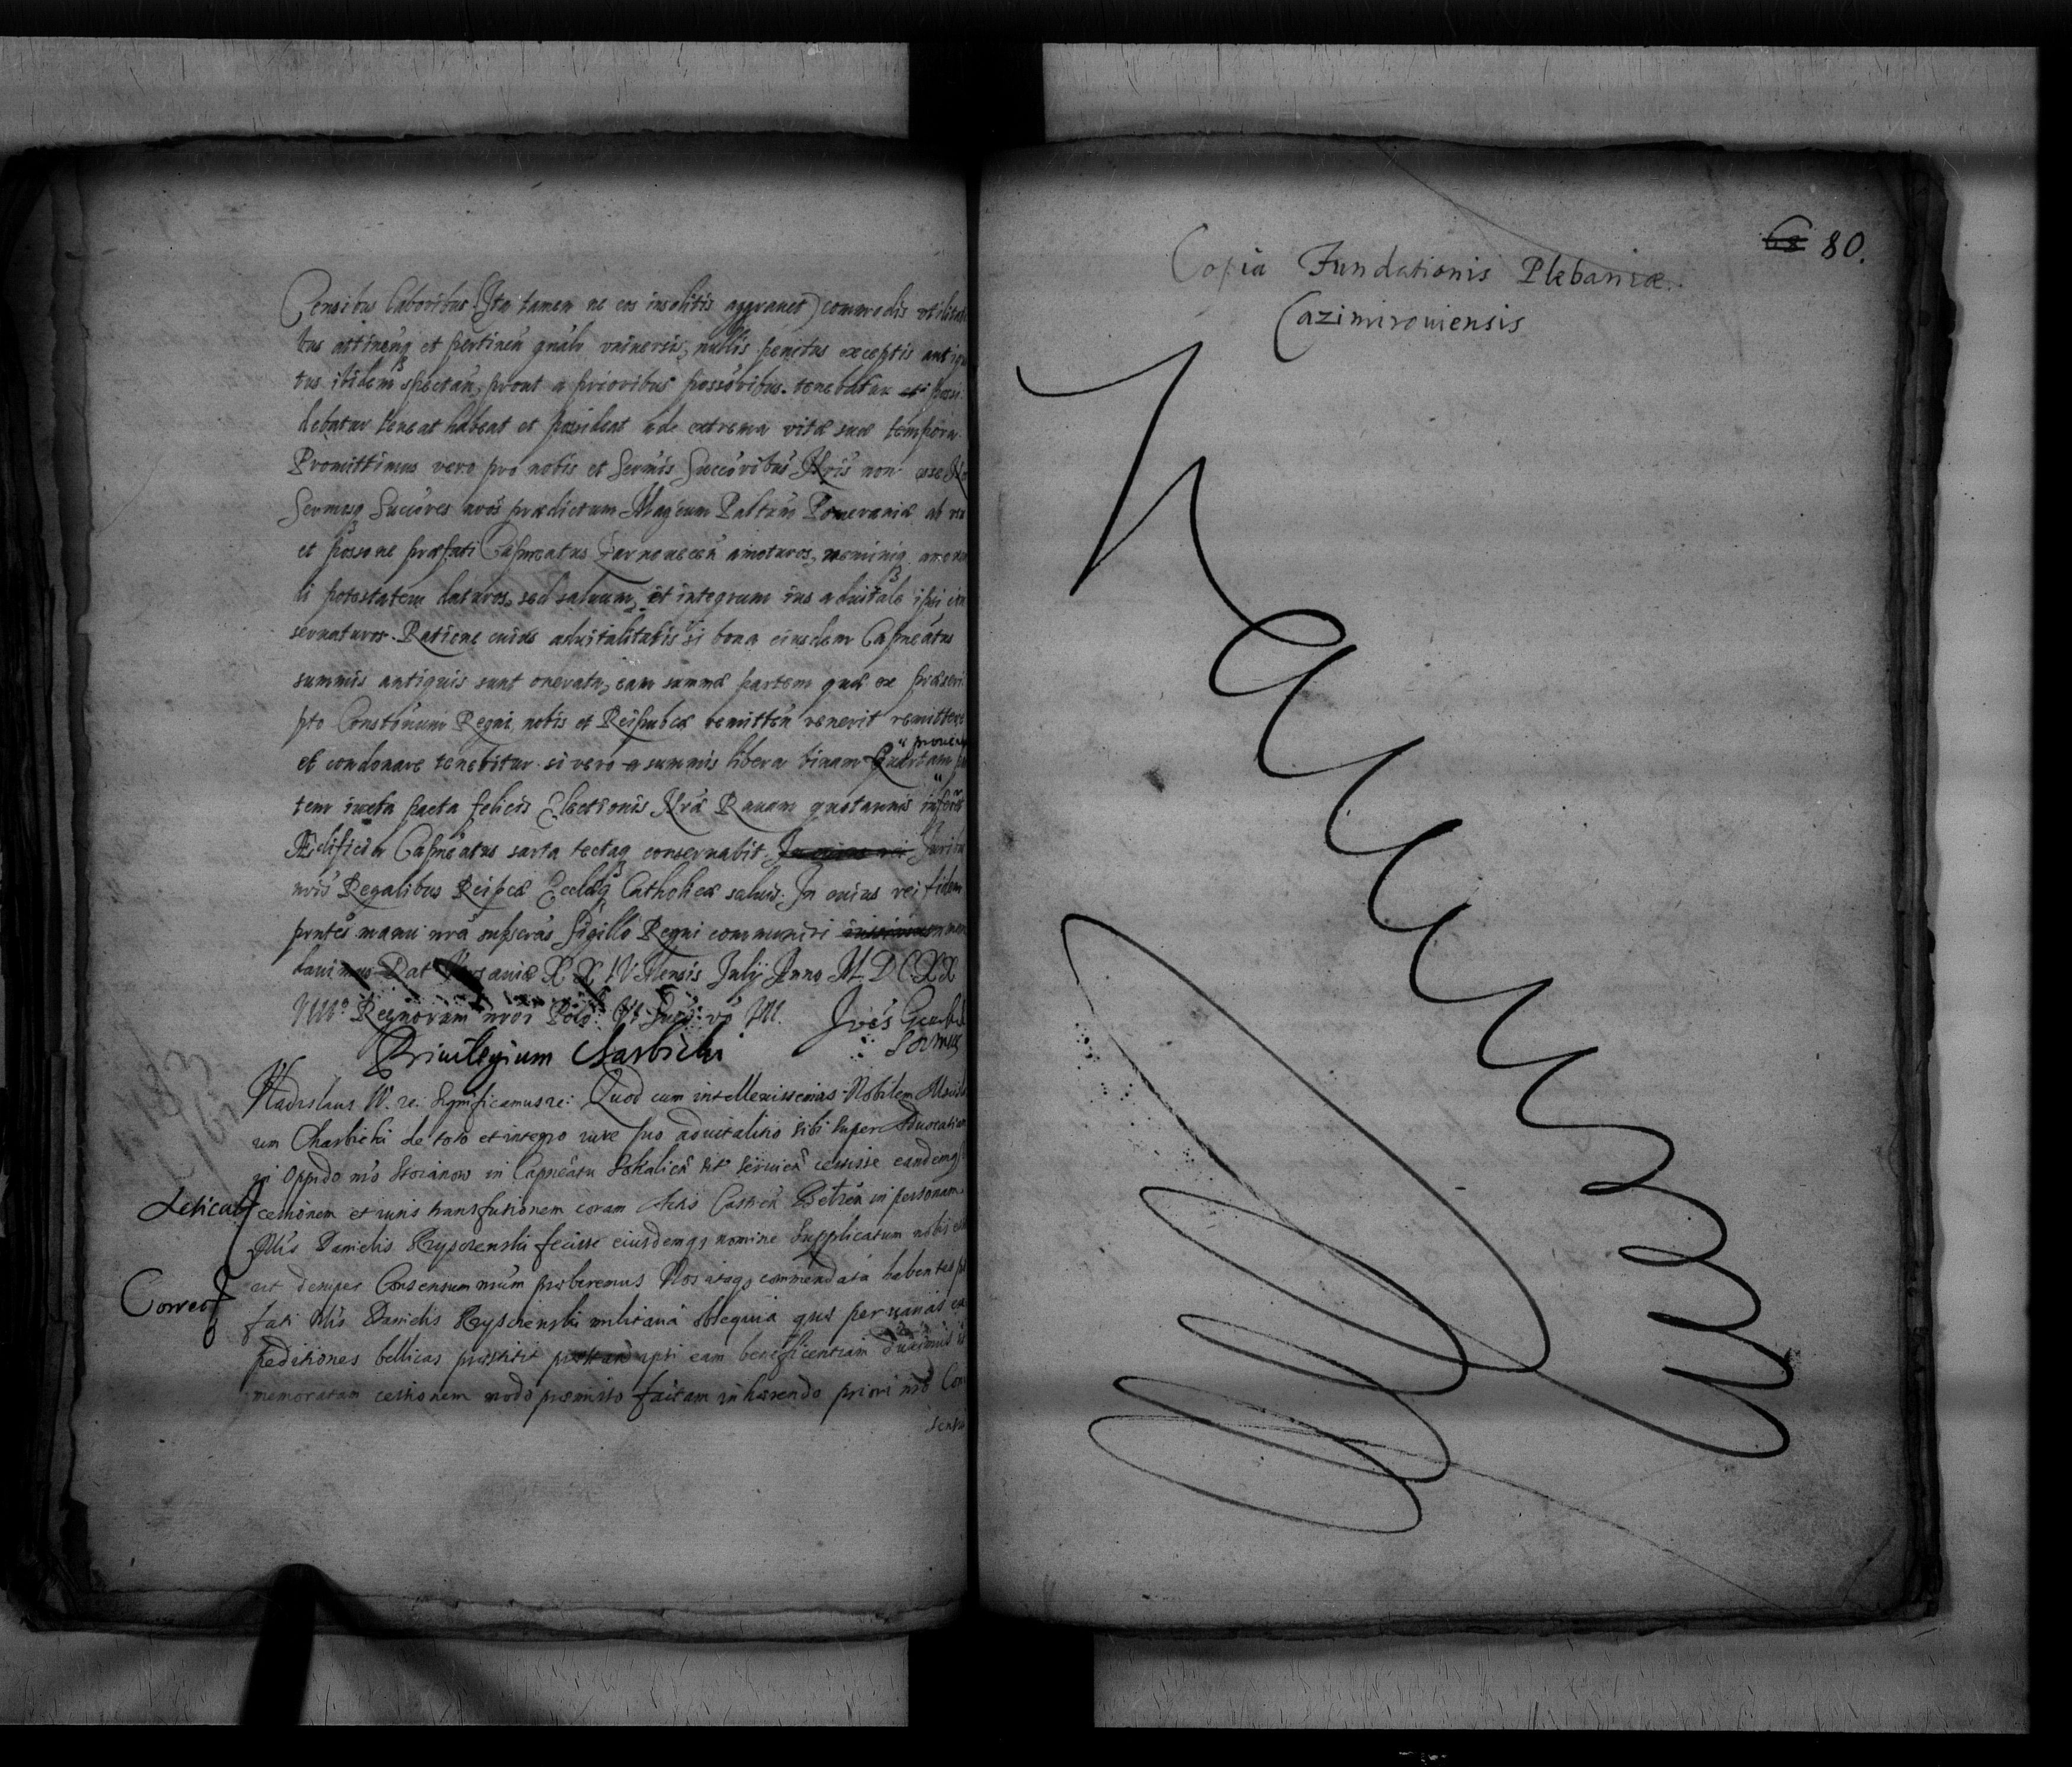 Censibus laboribus (Ita tamen ne eos insolitis aggrauet) commodis utilitati
bus attinenq et pertinen gnalr vniuersis, nullis penitus exceptis antiqui
tus ibidem spectan, prout a prioribus possoribus tenebatur et possi
debatur teneat habeat et possideat ad extrema vitæ suæ tempora
Promittimus vero pro nobis et Sermis Succoribus Nris non esse No
Sermosq Succores nros prædictum Magcum Paltnum Pomeraniæ ab usu
et possone præfati Capneatus amoturos, neminiq amouen
di potestatem daturos, sed saluum, et integrum ius aduitale ipsi con
seruaturos. Ratione cuius aduitalitatis si bona eiusdem Capneatus
summis antiquis sunt onerata, eam summæ partem quæ ex præscri
pto Constonum Regni nobis et Reipubcæ remitten venerit remittere
et condonare tenebitur. si vero a summis libera binam Quartam
prouen
tem iuxta pacta felicis Electionis Nræ Rauam quotannis inferet
Ædificia Capneatus sarta tectaq conseruabit. In cuius rei Juribus
nris Regalibus Reipcæ Ecclæq Catholicæ saluis. In cuius rei fidem
prntes manu nra subscras Sigillo Regni communiri man
dauimus Dat Varsauiæ XXIV Mensis Julij Anno MDCXX
Regnorum nror Pol: III. Jves
Priuilegium Charbicki
Vladislaus IV. re: Significamus re: Quod cum intellexissemus Nobilem
um Charbicki de toto et integro iure suo aduitalitio sibi super Aduocatiam
in Oppido nro Stoianow in Capneatu Sokalien sit seruien cessisse eandemq
Delicat
cessionem et iuris transfusionem coram Actis Castren Betzen in personam
Nlis Danielis Ryszczenski fecisse eiusdemq nomine Supplicatum nobis
Correct
ut desuper Consensum nrum præberemus Nos itaq commendata habentes præ
fati Nlis Danielis Ryszczenski militaria obsequia quæ per uarias ex
peditiones bellicas præstitit ipsi eam beneficentiam duximus
memoratam cessionem modo præmisso factam inhærendo priori nro Con
sensu
68 80.
Copia Fundationis Plebaniæ
Cazimirouiensis